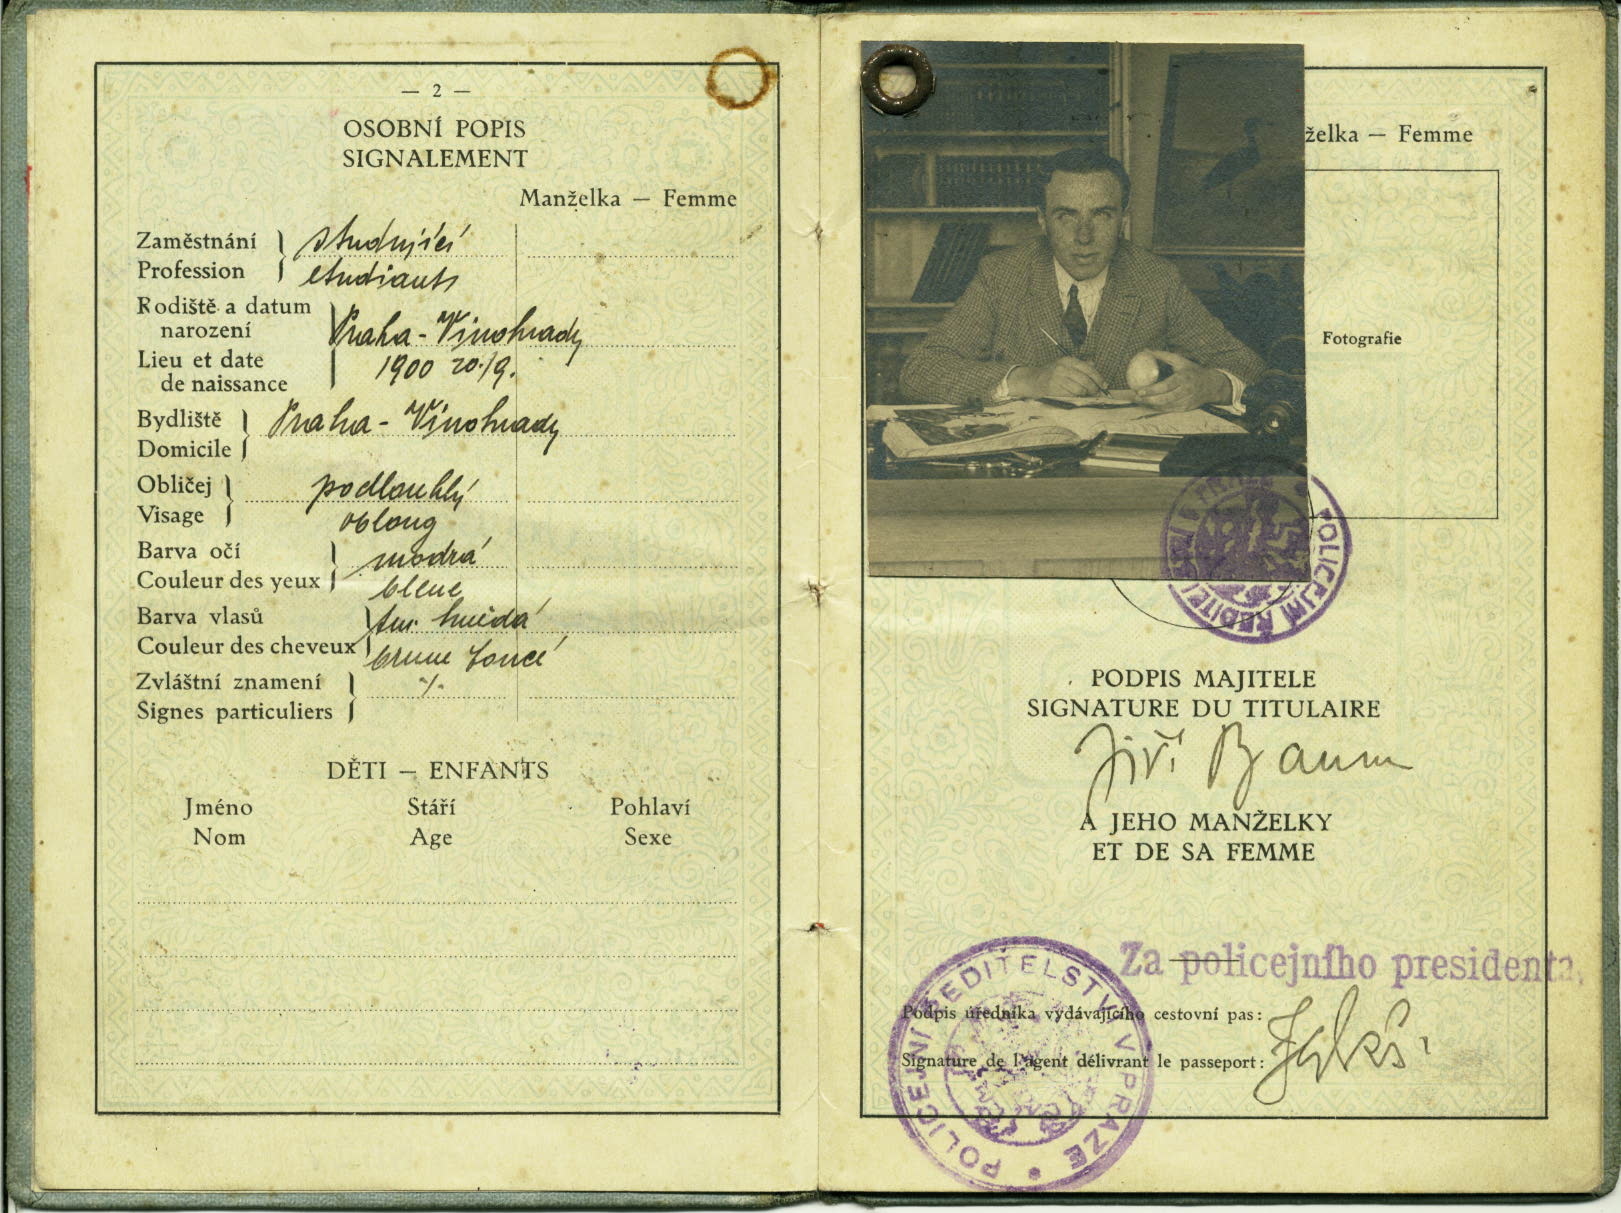 — 2 —
OSOBNÍ POPIS
SIGNALEMENT
Manželka — Femme
Zaměstnání studující
Profession etudiants
Rodiště a datum
narození Praha-Vinohrady
Lieu et date 1900 20./9.
de naissance
Bydliště Praha-Vinohrady
Domicile
Obličej podlouhlý
Visage oblong
Barva očí modrá
Couleur des yeux bleue
Barva vlasů tm. hnědá
Couleur des cheveux brune foncé
Zvláštní znamení ./.
Signes particuliers
DĚTI — ENFANTS
Jméno Stáří Pohlaví
Nom Age Sexe
želka — Femme
Fotografie
POLICEJNÍ ŘEDITELSTVÍ V PRAZE
PODPIS MAJITELE
SIGNATURE DU TITULAIRE
Jiří Baum
A JEHO MANŽELKY
ET DE SA FEMME
Za policejního presidenta
Podpis úředníka vydávajícího cestovní pas:
Signature de l'agent délivrant le passeport:
POLICEJNÍ ŘEDITELSTVÍ V PRAZE